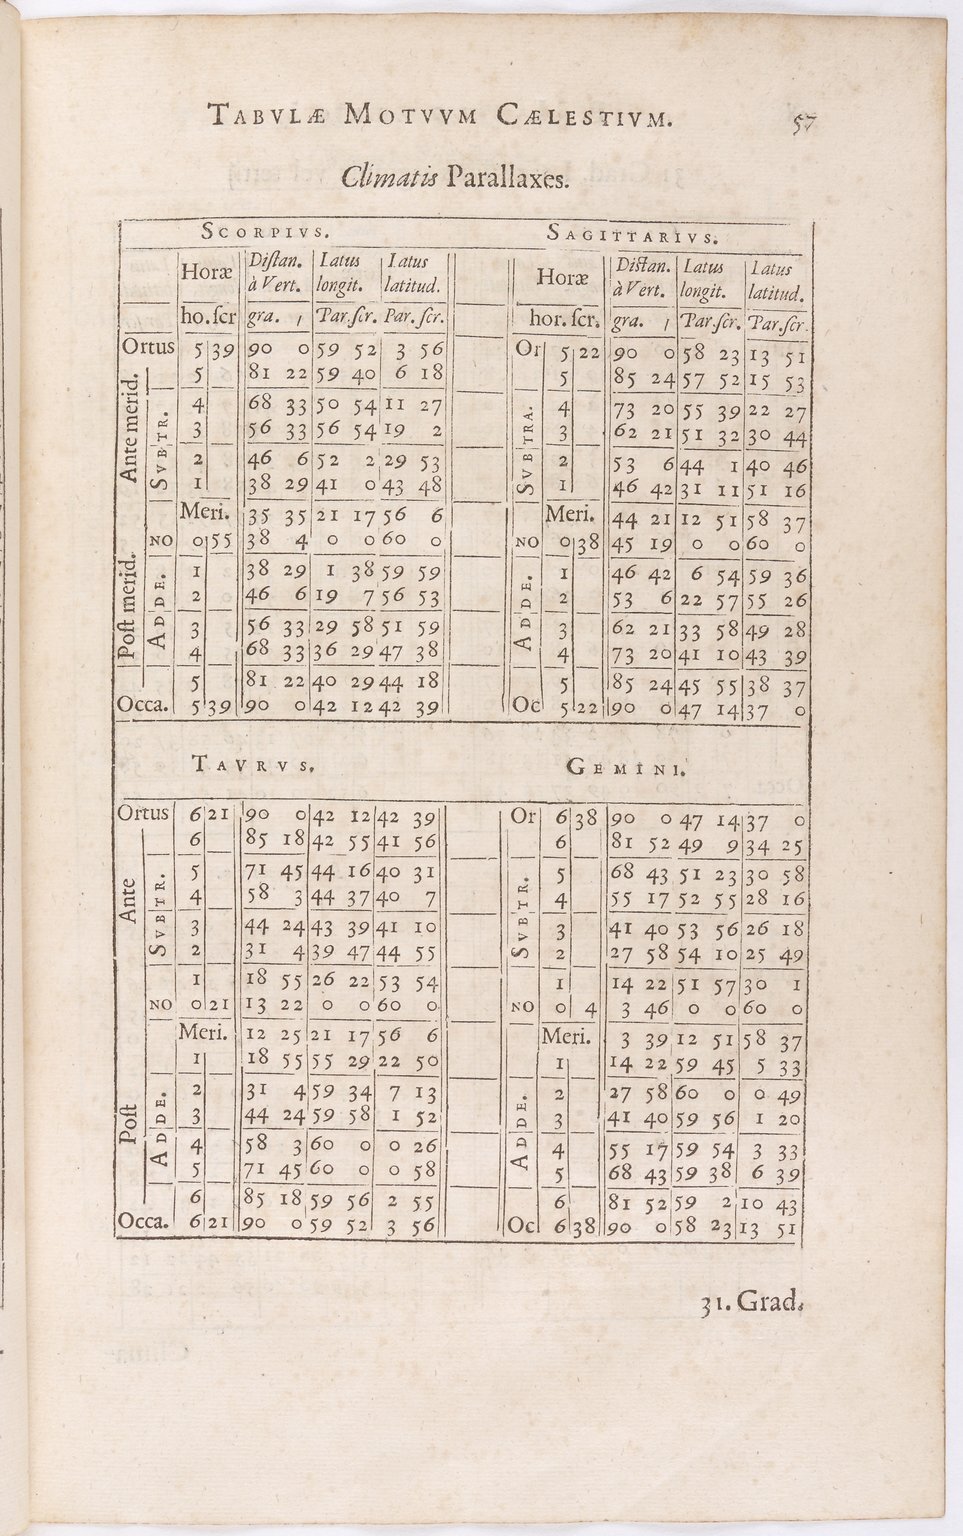 TABVLÆ MOTVVM CÆLESTIVM. 57
Climatis Parallaxes.
SCORPIVS. SAGITTARIVS.
Horæ Distan. à Vert. Latus longit. Latus latitud. Horæ Distan. à Vert. Latus longit. Latus latitud.
ho. scr gra. ′ Par. scr. Par. scr. hor. scr. gra. ′ Par. scr. Par. scr.
Ante merid. SVBTR. Post merid. ADDE. SVBTRA. ADDE.
Ortus 5 39 90 0 59 52 3 56 Or 5 22 90 0 58 23 13 51
5 81 22 59 40 6 18 5 85 24 57 52 15 53
4 68 33 50 54 11 27 4 73 20 55 39 22 27
3 56 33 56 54 19 2 3 62 21 51 32 30 44
2 46 6 52 2 29 53 2 53 6 44 1 40 46
1 38 29 41 0 43 48 1 46 42 31 11 51 16
Meri. 35 35 21 17 56 6 Meri. 44 21 12 51 58 37
NO 0 55 38 4 0 0 60 0 NO 0 38 45 19 0 0 60 0
1 38 29 1 38 59 59 1 46 42 6 54 59 36
2 46 6 19 7 56 53 2 53 6 22 57 55 26
3 56 33 29 58 51 59 3 62 21 33 58 49 28
4 68 33 36 29 47 38 4 73 20 41 10 43 39
5 81 22 40 29 44 18 5 85 24 45 55 38 37
Occa. 5 39 90 0 42 12 42 39 Oc 5 22 90 0 47 14 37 0
TAVRVS. GEMINI.
Ante SVBTR. Post ADDE. SVBTR. ADDE.
Ortus 6 21 90 0 42 12 42 39 Or 6 38 90 0 47 14 37 0
6 85 18 42 55 41 56 6 81 52 49 9 34 25
5 71 45 44 16 40 31 5 68 43 51 23 30 58
4 58 3 44 37 40 7 4 55 17 52 55 28 16
3 44 24 43 39 41 10 3 41 40 53 56 26 18
2 31 4 39 47 44 55 2 27 58 54 10 25 49
1 18 55 26 22 53 54 1 14 22 51 57 30 1
NO 0 21 13 22 0 0 60 0 NO 0 4 3 46 0 0 60 0
Meri. 12 25 21 17 56 6 Meri. 3 39 12 51 58 37
1 18 55 55 29 22 50 1 14 22 59 45 5 33
2 31 4 59 34 7 13 2 27 58 60 0 0 49
3 44 24 59 58 1 52 3 41 40 59 56 1 20
4 58 3 60 0 0 26 4 55 17 59 54 3 33
5 71 45 60 0 0 58 5 68 43 59 38 6 39
6 85 18 59 56 2 55 6 81 52 59 2 10 43
Occa. 6 21 90 0 59 52 3 56 Oc 6 38 90 0 58 23 13 51
31. Grad.